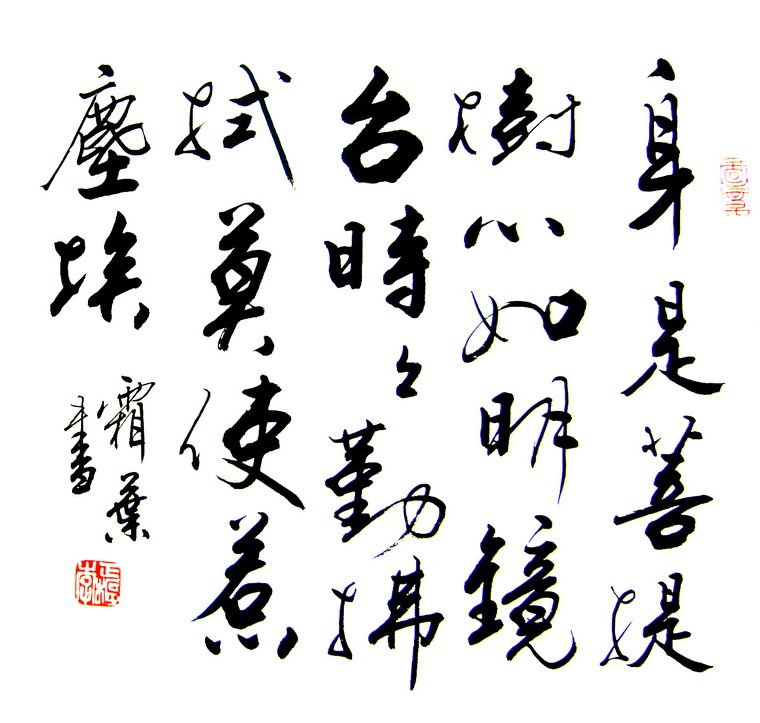 身是菩提
樹心如明鏡
台時々勤拂
拭莫使惹
塵埃
霜葉
書